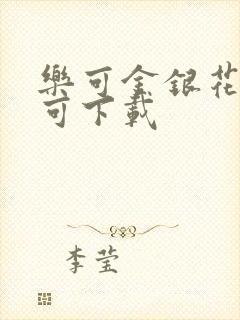 樂可金銀花
可下載
李莹